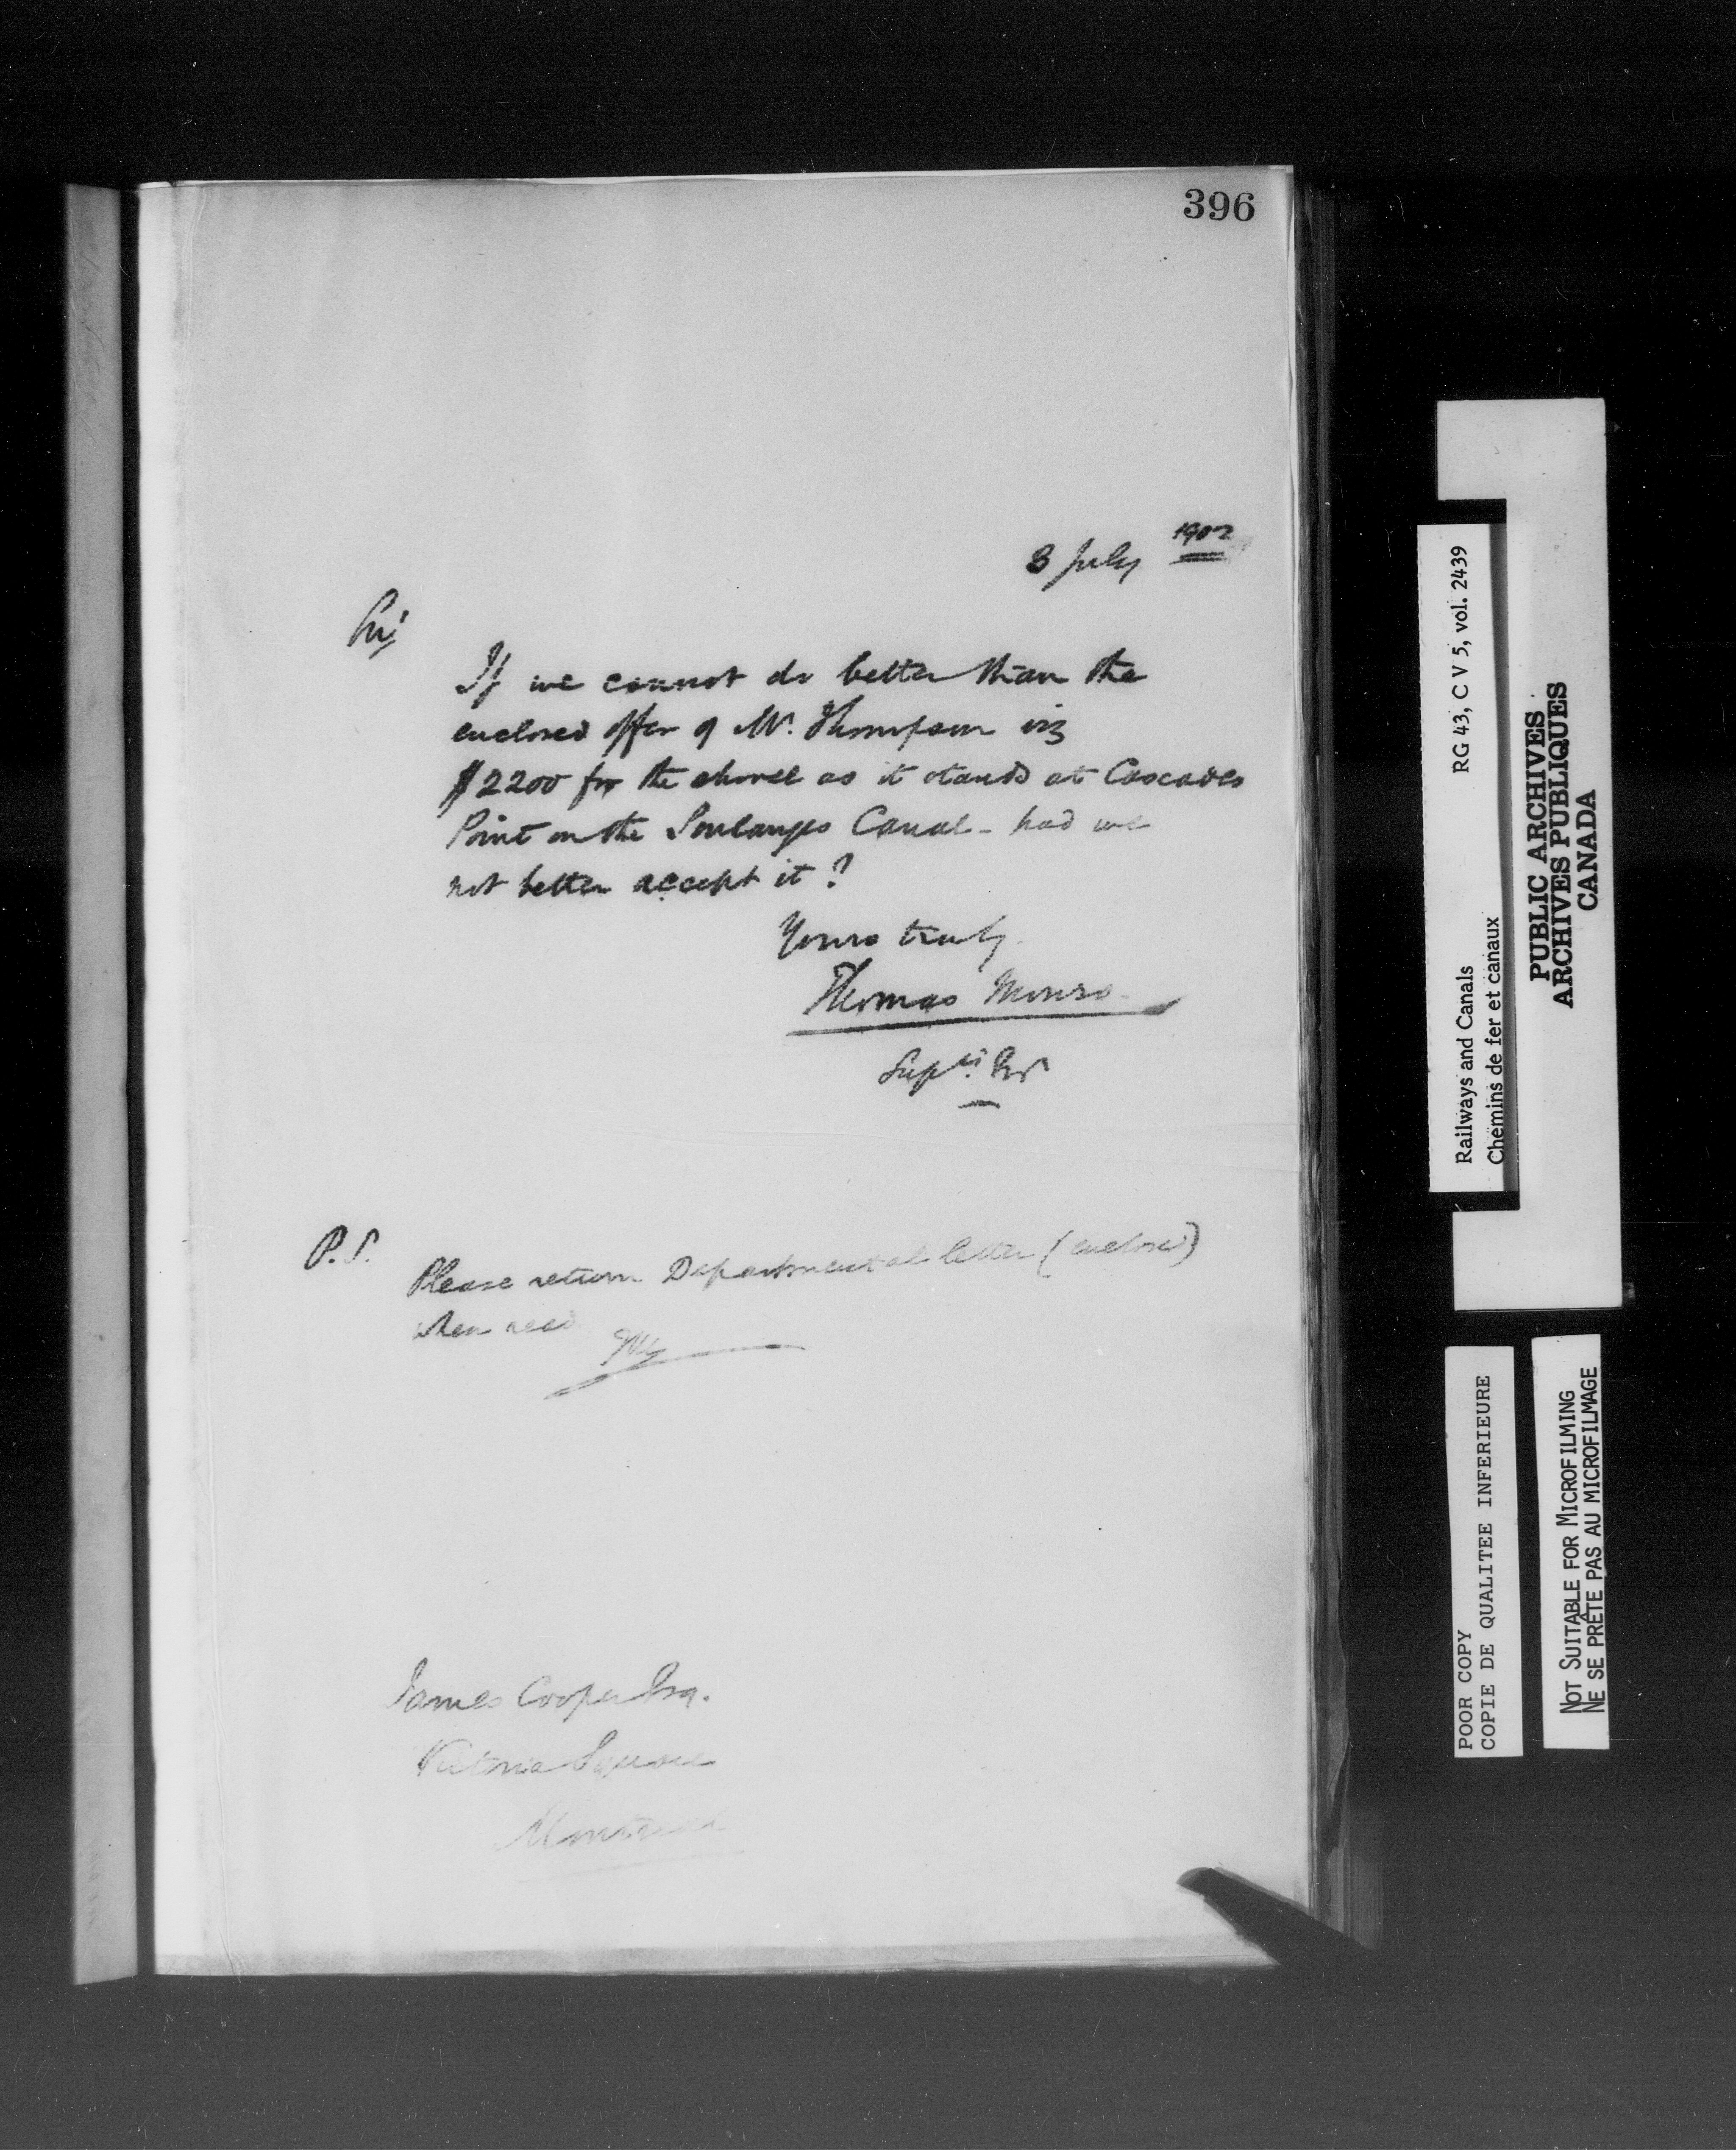 396
3 July 1902
Sir,
If we cannot do better than the
enclosed offer of Mr. Thompson viz
$2200 for the shovel as it stands at Cascades
Point on the Soulanges Canal - had we
not better accept it?
Yours truly
Thomas Monro
P.S.
Please return Departmental letter (enclosed)
when read
James Cooper Esq.
Victoria Square
Montreal
Railways and Canals RG 43, C V 5, vol. 2439
Chemins de fer et canaux
PUBLIC ARCHIVES
ARCHIVES PUBLIQUES
CANADA
POOR COPY
COPIE DE QUALITEE INFERIEURE
NOT SUITABLE FOR MICROFILMING
NE SE PRÊTE PAS AU MICROFILMAGE